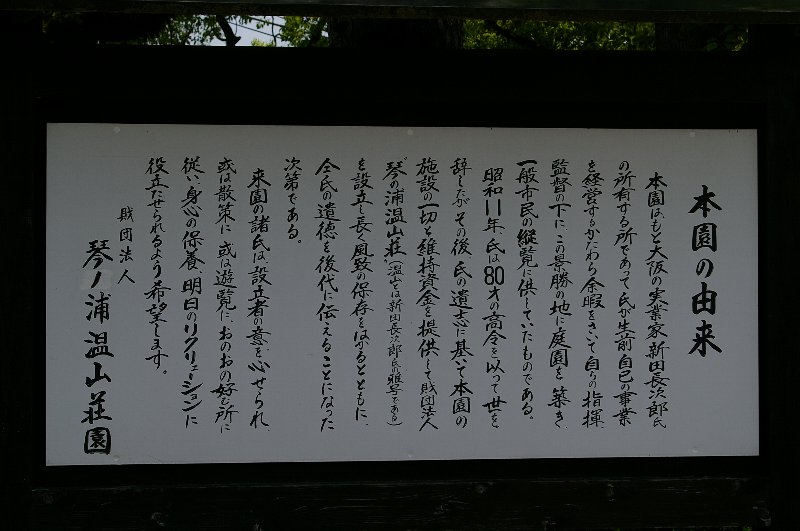 本園の由来
本園はもと大阪の実業家新田長次郎氏
の所有する所であって氏が生前自己の事業
を経営するかたわら余暇をさいて自らの指揮
監督の下に、この景勝の地に庭園を築き、
一般市民の縦覧に供していたものである。
昭和11年氏は80才の高令を以って世を
辞したがその後氏の遺志に基いて本園の
施設の一切と維持資金を提供して財団法人
琴の浦温山荘(温山とは新田長次郎氏の雅号である)
を設立し長く風致の保存をはかるとともに、
仝氏の遺徳を後代に伝えることになった
次第である。
来園の諸氏は設立者の意を心せられ
或は散策に、或は遊覧に、おのおの好む所に
従い身心の保養、明日のリクリェーションに
役立たせられるよう希望します。
財団法人
琴ノ浦温山荘園